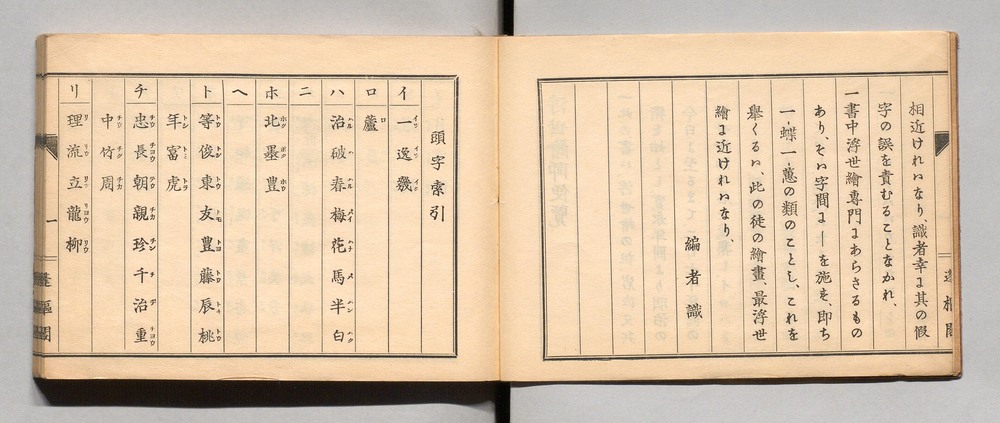 相近けれバなり、識者幸に其の假
字の誤を責むることなかれ、
一書中浮世繪專門にあらさるもの
あり、そハ字間に｜を施を、即ち
一｜蝶一｜蕙の類のことし、これを
擧くるハ、此の徒の繪畫、最浮世
繪に近けれバなり、
編者識
頭字索引
イ 一イツ 逸イツ 幾イク
ロ 蘆ロ
ハ 治ハル 破ハ 春ハル 梅バイ 花ハナ 馬バ 半ハン 白ハク
ニ
ホ 北ホク 墨ボク 豊ホウ
ヘ
ト 等トウ 俊トシ 東トウ 友トモ 豊トヨ 藤トウ 辰トキ 桃トウ
年トシ 富トミ 虎トラ
チ 忠チウ 長チヨウ 朝チヨウ 親チカ 珍チン 千チ 治ヂ 重チヨウ
中チウ 竹チク 周チカ
リ 理リ 流リウ 立リツ 龍リヨウ 柳リウ
一